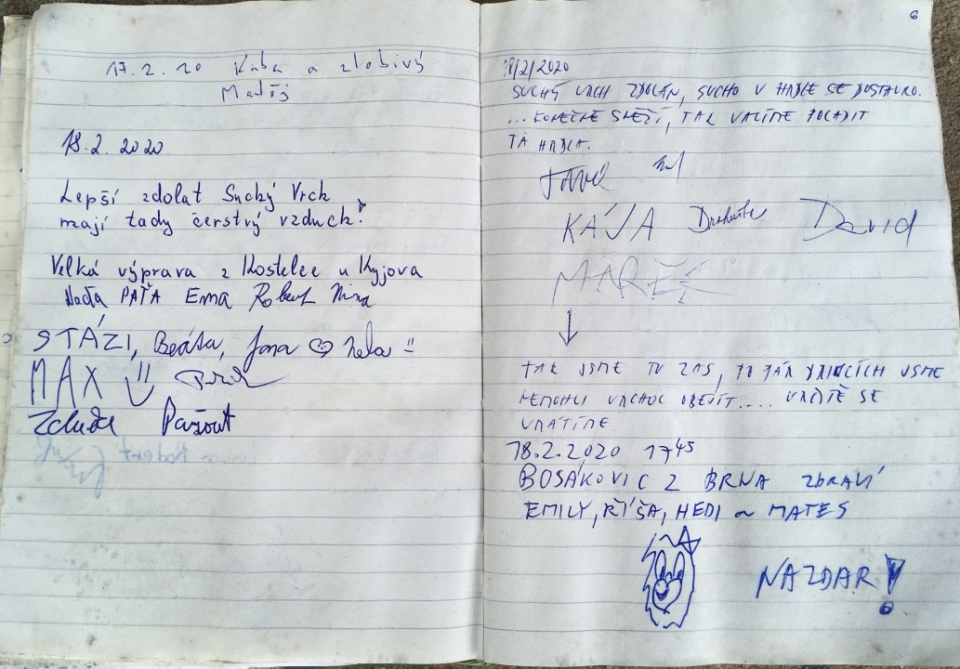 17.2.20 Kuba a zlobivý
Matěj
18.2.2020
Lepší zdolat Suchý Vrch
mají tady čerstvý vzduch!
Velká výprava z Kostelce u Kyjova
Naďa PAŤA Ema Robert Nina
STÁZI, Beáta, Jana Nela
MAX
Pažout
6
18/2/2020
SUCHÝ VRCH ZDOLÁN, SUCHO V HRDLE SE DOSTAVILO.
... KONEČNĚ SNĚŽÍ, TAK VALÍME POLADIT
TA HRDLA.
KÁJA David
MAREK
TAK JSME TU ZAS, PO PÁR DRINCÍCH JSME
NEMOHLI VRCHOL OBEJÍT.... URČITĚ SE
VRÁTÍME
18.2.2020 17 45
BOSÁKOVIC Z BRNA ZDRAVÍ
EMILY, RÍŠA, HEDI ~ MATES
NAZDAR!